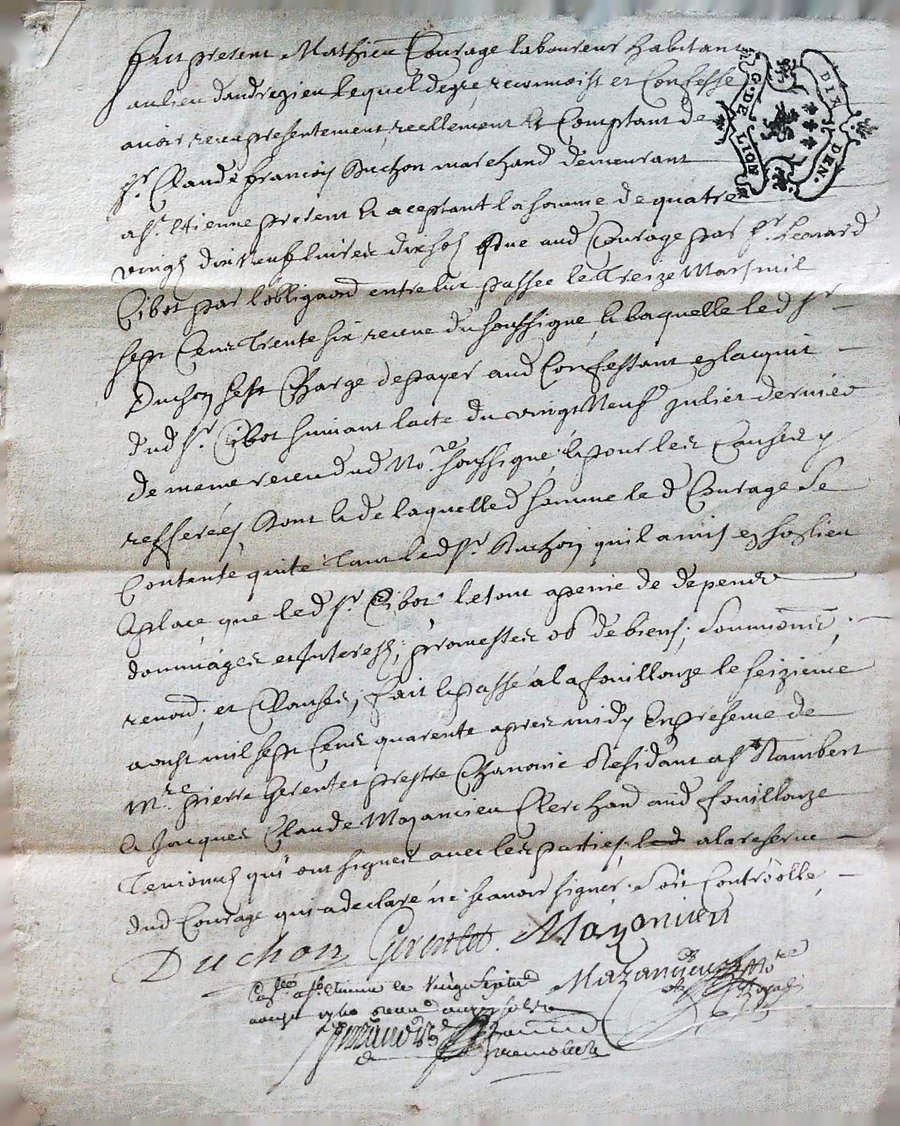 Fut present Mathieu Courage laboureur habitant
au lieu dandrezieu lequel de gre reconnoist et Confesse
avoir receu presentement, reellement & Comptant de
Sr. Claude francois Duchon marchand demeurant
a St. Etienne present & aceptant la somme de quatre
vingts dix neuf livres dix sols due aud Courage par Sr. Leonard
Cibot par lobligaon entre eux passée le treize Mars mil
sept Cens Trente six receue du soussigne, & laquelle led Sr
Duchon sest Charge de payer aud Confessant en lacquit
dud Sr. Cibot suivant lacte du vingt Neuf juliet dernier
de meme receu dud Nore. soussigné, & pour les Causes y
refferées, dont & de laquelle d somme le d Courage se
Contente quite tant led Sr. Duchon quil a mis en son lieu
& place, que led Sr. Cibot, le tout a peine de depends
dommages et Interests; promesses ob de biens; soumions;
renond; et Clauses; fait & passé a la fouillouze le seizieme
aoust mil sept Cens quarente apres midy En presence de
Mre. pierre Gerentet prestre Chanoine Residant a St Rambert
& Jacques Claude Mazancieu Clerc aud fouillouze
Temoins qui ont signes avec les parties, a la reserve
dud Courage qui a declaré ne scavoir signer. Soit Controolle
Duchon Gerentet. Mazancieu
Mazancieu Nore Royal
C.DE LION
DIX DEN.